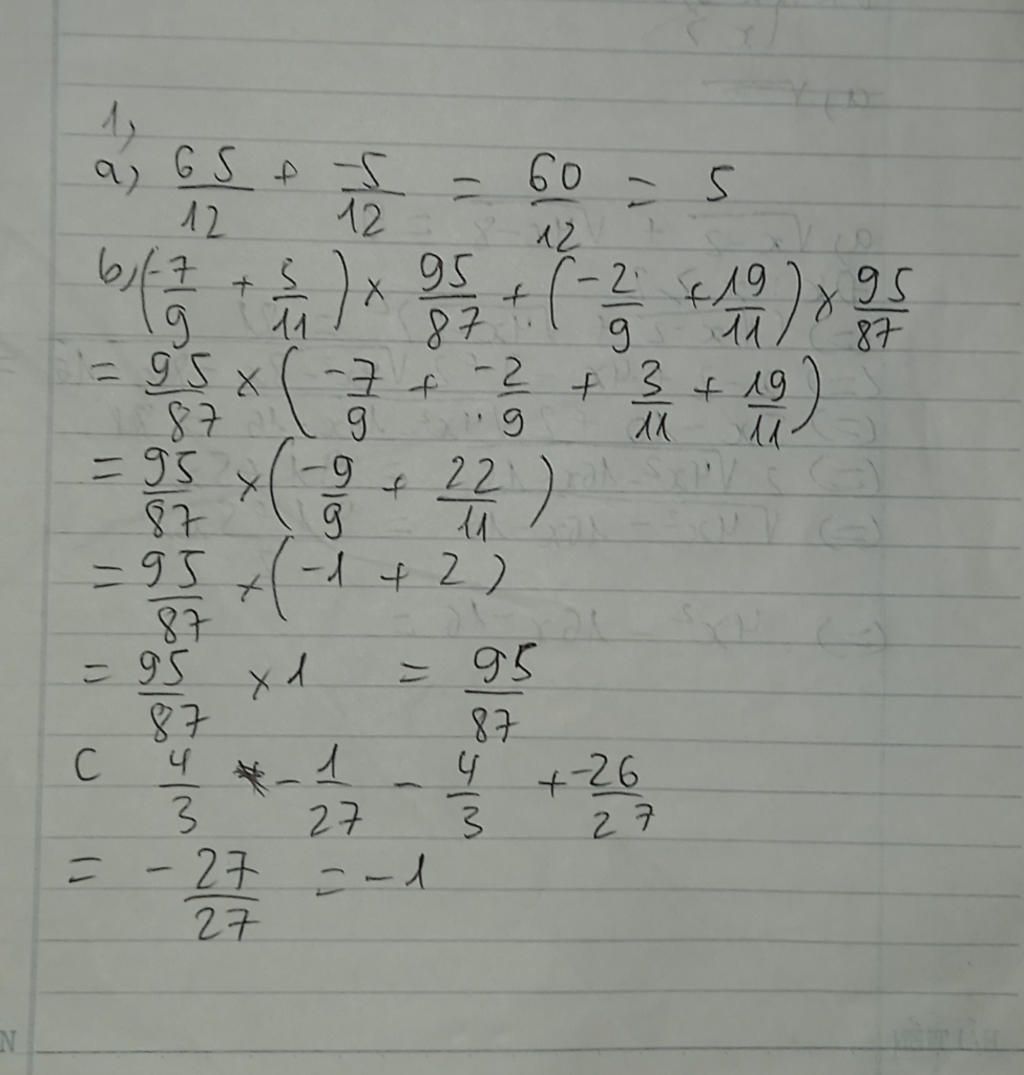 1,
a) 65/12 + -5/12 = 60/12 = 5
b, (-7/9 + 3/11) × 95/87 + (-2/9 + 19/11) × 95/87
= 95/87 × (-7/9 + -2/9 + 3/11 + 19/11)
= 95/87 × (-9/9 + 22/11)
= 95/87 × (-1 + 2)
= 95/87 × 1 = 95/87
C 4/3 - 1/27 - 4/3 + -26/27
= - 27/27 = -1